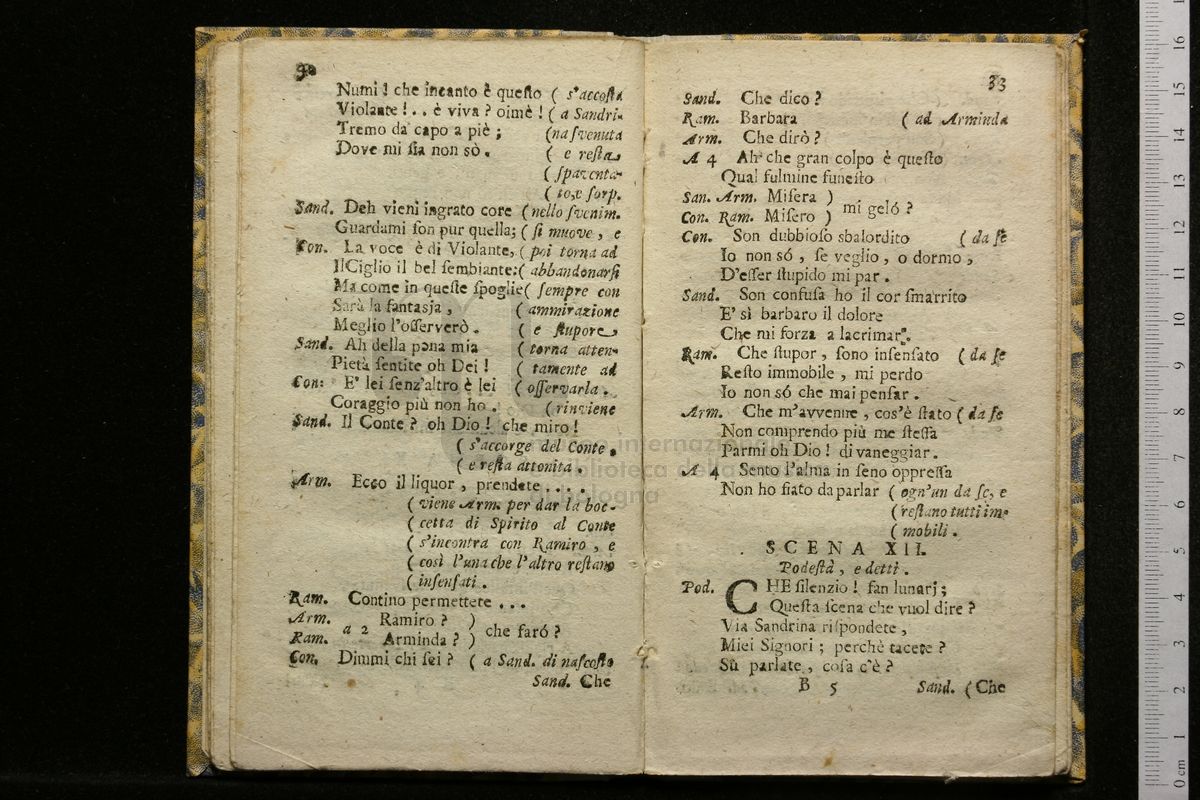 30
Numi ! che incanto è questo ( s'accosta
Violante ! . . è viva ? oimè ! ( a Sandri-
Tremo da capo a piè ; (na svenuta
Dove mi sia non sò . ( e resta
( spaventa-
( to, e sorp.
Sand. Deh vieni ingrato core ( nello svenim.
Guardami son pur quella; ( si muove , e
Con. La voce è di Violante, ( poi torna ad
Il Ciglio il bel sembiante: ( abbandonarsi
Ma come in queste spoglie ( sempre con
Sarà la fantasja , ( ammirazione
Meglio l'osserverò . ( e stupore
Sand. Ah della pena mia ( torna atten-
Pietà sentite oh Dei ! ( tamente ad
Con: E' lei senz'altro è lei ( osservarla .
Coraggio più non ho . ( rinviene
Sand. Il Conte ? oh Dio ! che miro !
( s'accorge del Conte .
( e resta attonita .
Arm. Ecco il liquor , prendete . . . .
( viene Arm. per dar la boc-
( cetta di Spirito al Conte
( s'incontra con Ramiro , e
( così l'una che l'altro restano
( insensati .
Ram. Contino permettete . . .
Arm. Ramiro ? )
a 2 che faró ?
Ram. Arminda ? )
Con. Dimmi chi sei ? ( a Sand. di nascosto
Sand. Che
33
Sand. Che dico ?
Ram. Barbara ( ad Arminda
Arm. Che dirò ?
A 4 Ah che gran colpo è questo
Qual fulmine funesto
San. Arm. Misera )
mi geló ?
Con. Ram. Misero )
Con. Son dubbioso sbalordito ( da se
Io non só , se veglio , o dormo ,
D'esser stupido mi par .
Sand. Son confusa ho il cor smarrito
E' sì barbaro il dolore
Che mi forza a lacrimar .
Ram. Che stupor , sono insensato ( da se
Resto immobile , mi perdo
Io non só che mai pensar .
Arm. Che m'avvenne , cos'è stato ( da se
Non comprendo più me stessa
Parmi oh Dio ! di vaneggiar .
A 4 Sento l'alma in seno oppressa
Non ho fiato da parlar ( ogn'un da se, e
( restano tutti im-
( mobili .
SCENA XII.
Podestà , e detti .
Pod. CHE silenzio ! fan lunarj ;
Questa scena che vuol dire ?
Via Sandrina rispondete ,
Miei Signori ; perchè tacete ?
Sù parlate , cosa c'è ?
B 5 Sand. ( Che
museo internazionale
biblioteca della
di bologna